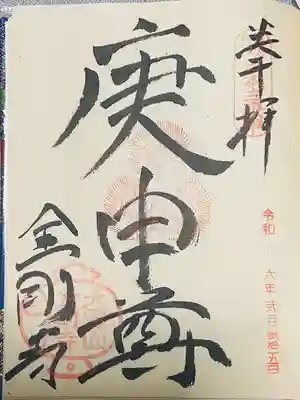 奉拝
令和 六年 弐月 弐拾五日
庚申尊
金剛寺